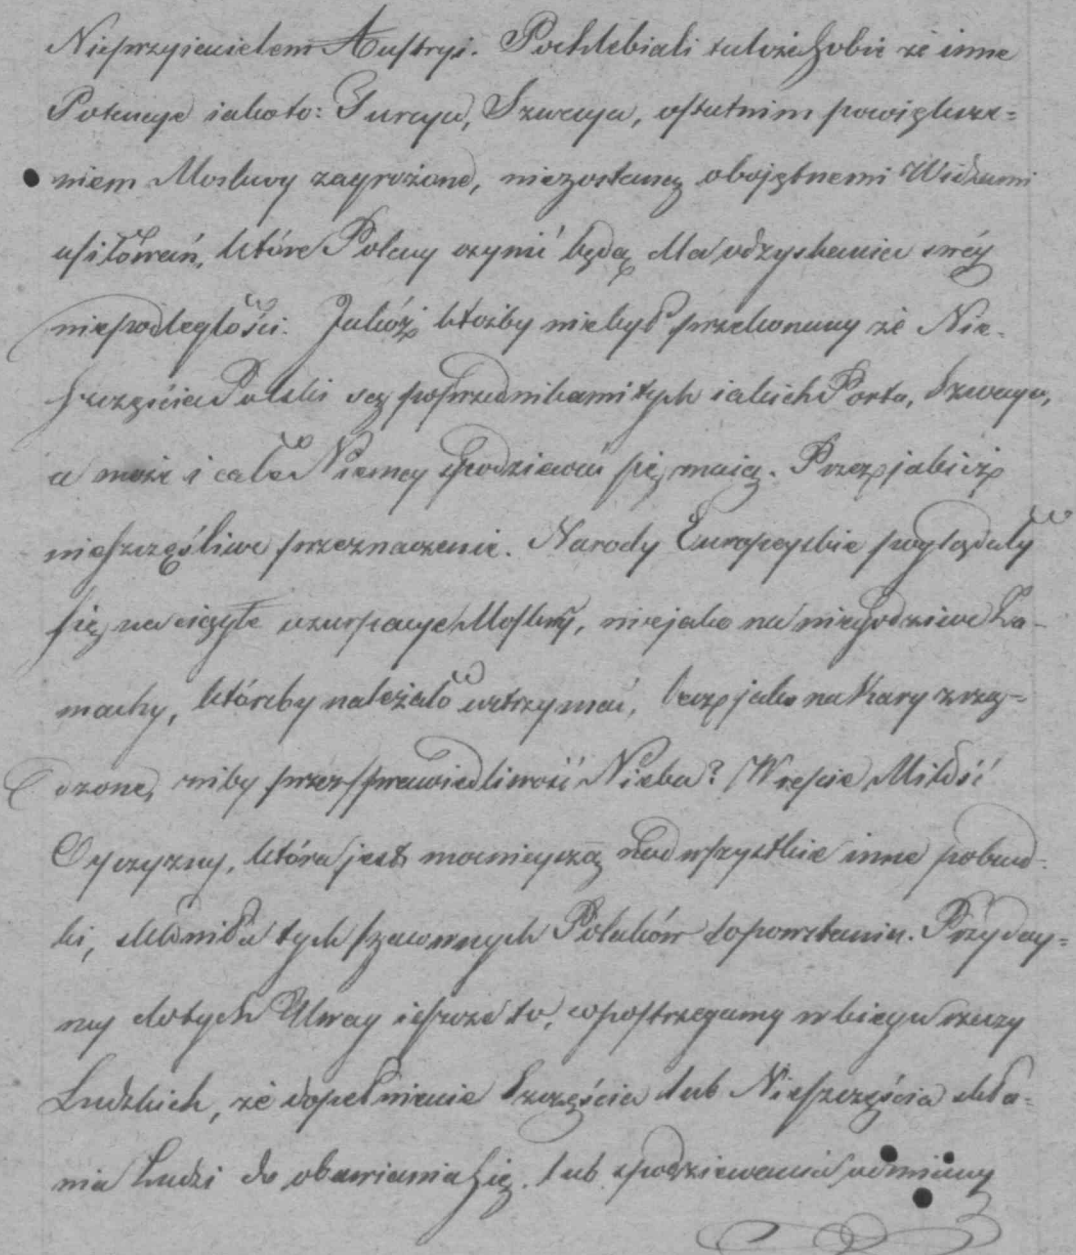 Nieprzyiacielem Austryi. Pochlebiali także sobie że inne
Potencye iako to: Turcya, Szwecya, ostatnim powiększe=
niem Moskwy zagrożone, niezostaną oboiętnemi Widzami
usiłowań, które Polacy czynić będą dla odzyskania swéy
niepodległości. Jakoż któżby niebył przekonany że Nie=
szczęścia Polski są poprzednikami tych iakich Porta, Szwecya,
a może i całe Niemcy spodziewać się maią. Przez jakieiż
nieszczęśliwe przeznaczenie. Narody Europeyskie poglądały
się na ciągłe uzurpacye Moskwy, nie jako na niegodziwe Za=
machy, któreby należało wstrzymać, lecz jako na Kary zrzą=
dzone, niby przez sprawiedliwość Nieba? Wreście Miłość
Oyczyzny, która jest mocnieyszą nad wszystkie inne pobud=
ki, skłoniła tych szacownych Polaków do powstania. Przyday=
my do tych Uwag ieszcze to, co postrzegamy w biegu rzeczy
Ludzkich, że dopełnienie Szczęścia lub Nieszczęścia skła=
nia Ludzi do obawiania się lub spodziewania odmiany